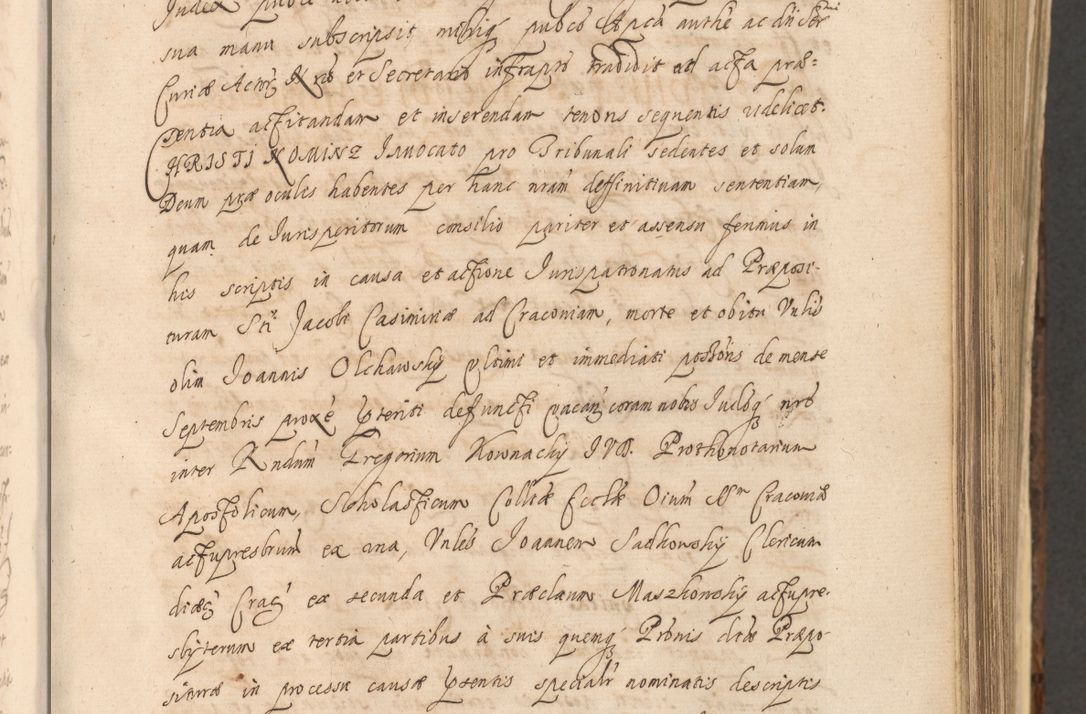 sua manu subscripsit mihiq pubco Apca authe ac dni
Curiæ Actor Nrio et Secretario infrapto tradidit ad acta præ=
sentia actitandam et inserendam tenoris sequentis videlicet.
CHRISTI NOMINE Invocato pro Tribunali sedentes et solum
Deum præ oculis habentes per hanc nram deffinitivam sententiam,
quam de Jurisperitorum consilio pariter et assensu ferimus in
his scriptis in causa et actione Jurispatronatus ad Præposi-
turam Sti Jacobi Casimiriæ ad Cracoviam, morte et obitu Vnlis
olim Joannis Olchawsky vltimi et immediati pssoris de mense
Septembris proxe pteriti defuncti vacan coram nobis Judiq nro
inter Rndum Gregorium Kownachy JVD. Prothonotarium
Apostolicum, Scholasticum Colltæ Ecclæ Oium SSm Cracoviæ
actupresbrum ex vna, Vnleb Joannem Sadkowsky Clericum
diæc Crac ex secunda et Præclarum Maszkowsky actupre-
sbyterum ex tertia partibus à suis quemq Pronis dtæ Præpo-
situræ in processu causæ psentis specialr nominatis descriptis